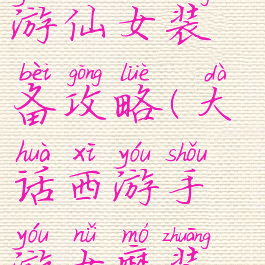 游仙女装
bèi gōng lüè dà
备攻略(大
huà xī yóu shǒu
话西游手
yóu nǚ mó zhuāng
游女魔装